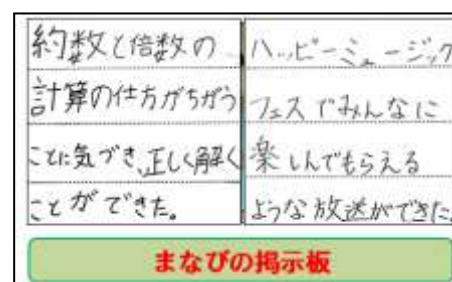 約数と倍数の
計算の仕方がちがう
ことに気づき、正しく解く
ことができた。
ハッピーミュージック
フェスでみんなに
楽しんでもらえる
ような放送ができた。
まなびの掲示板